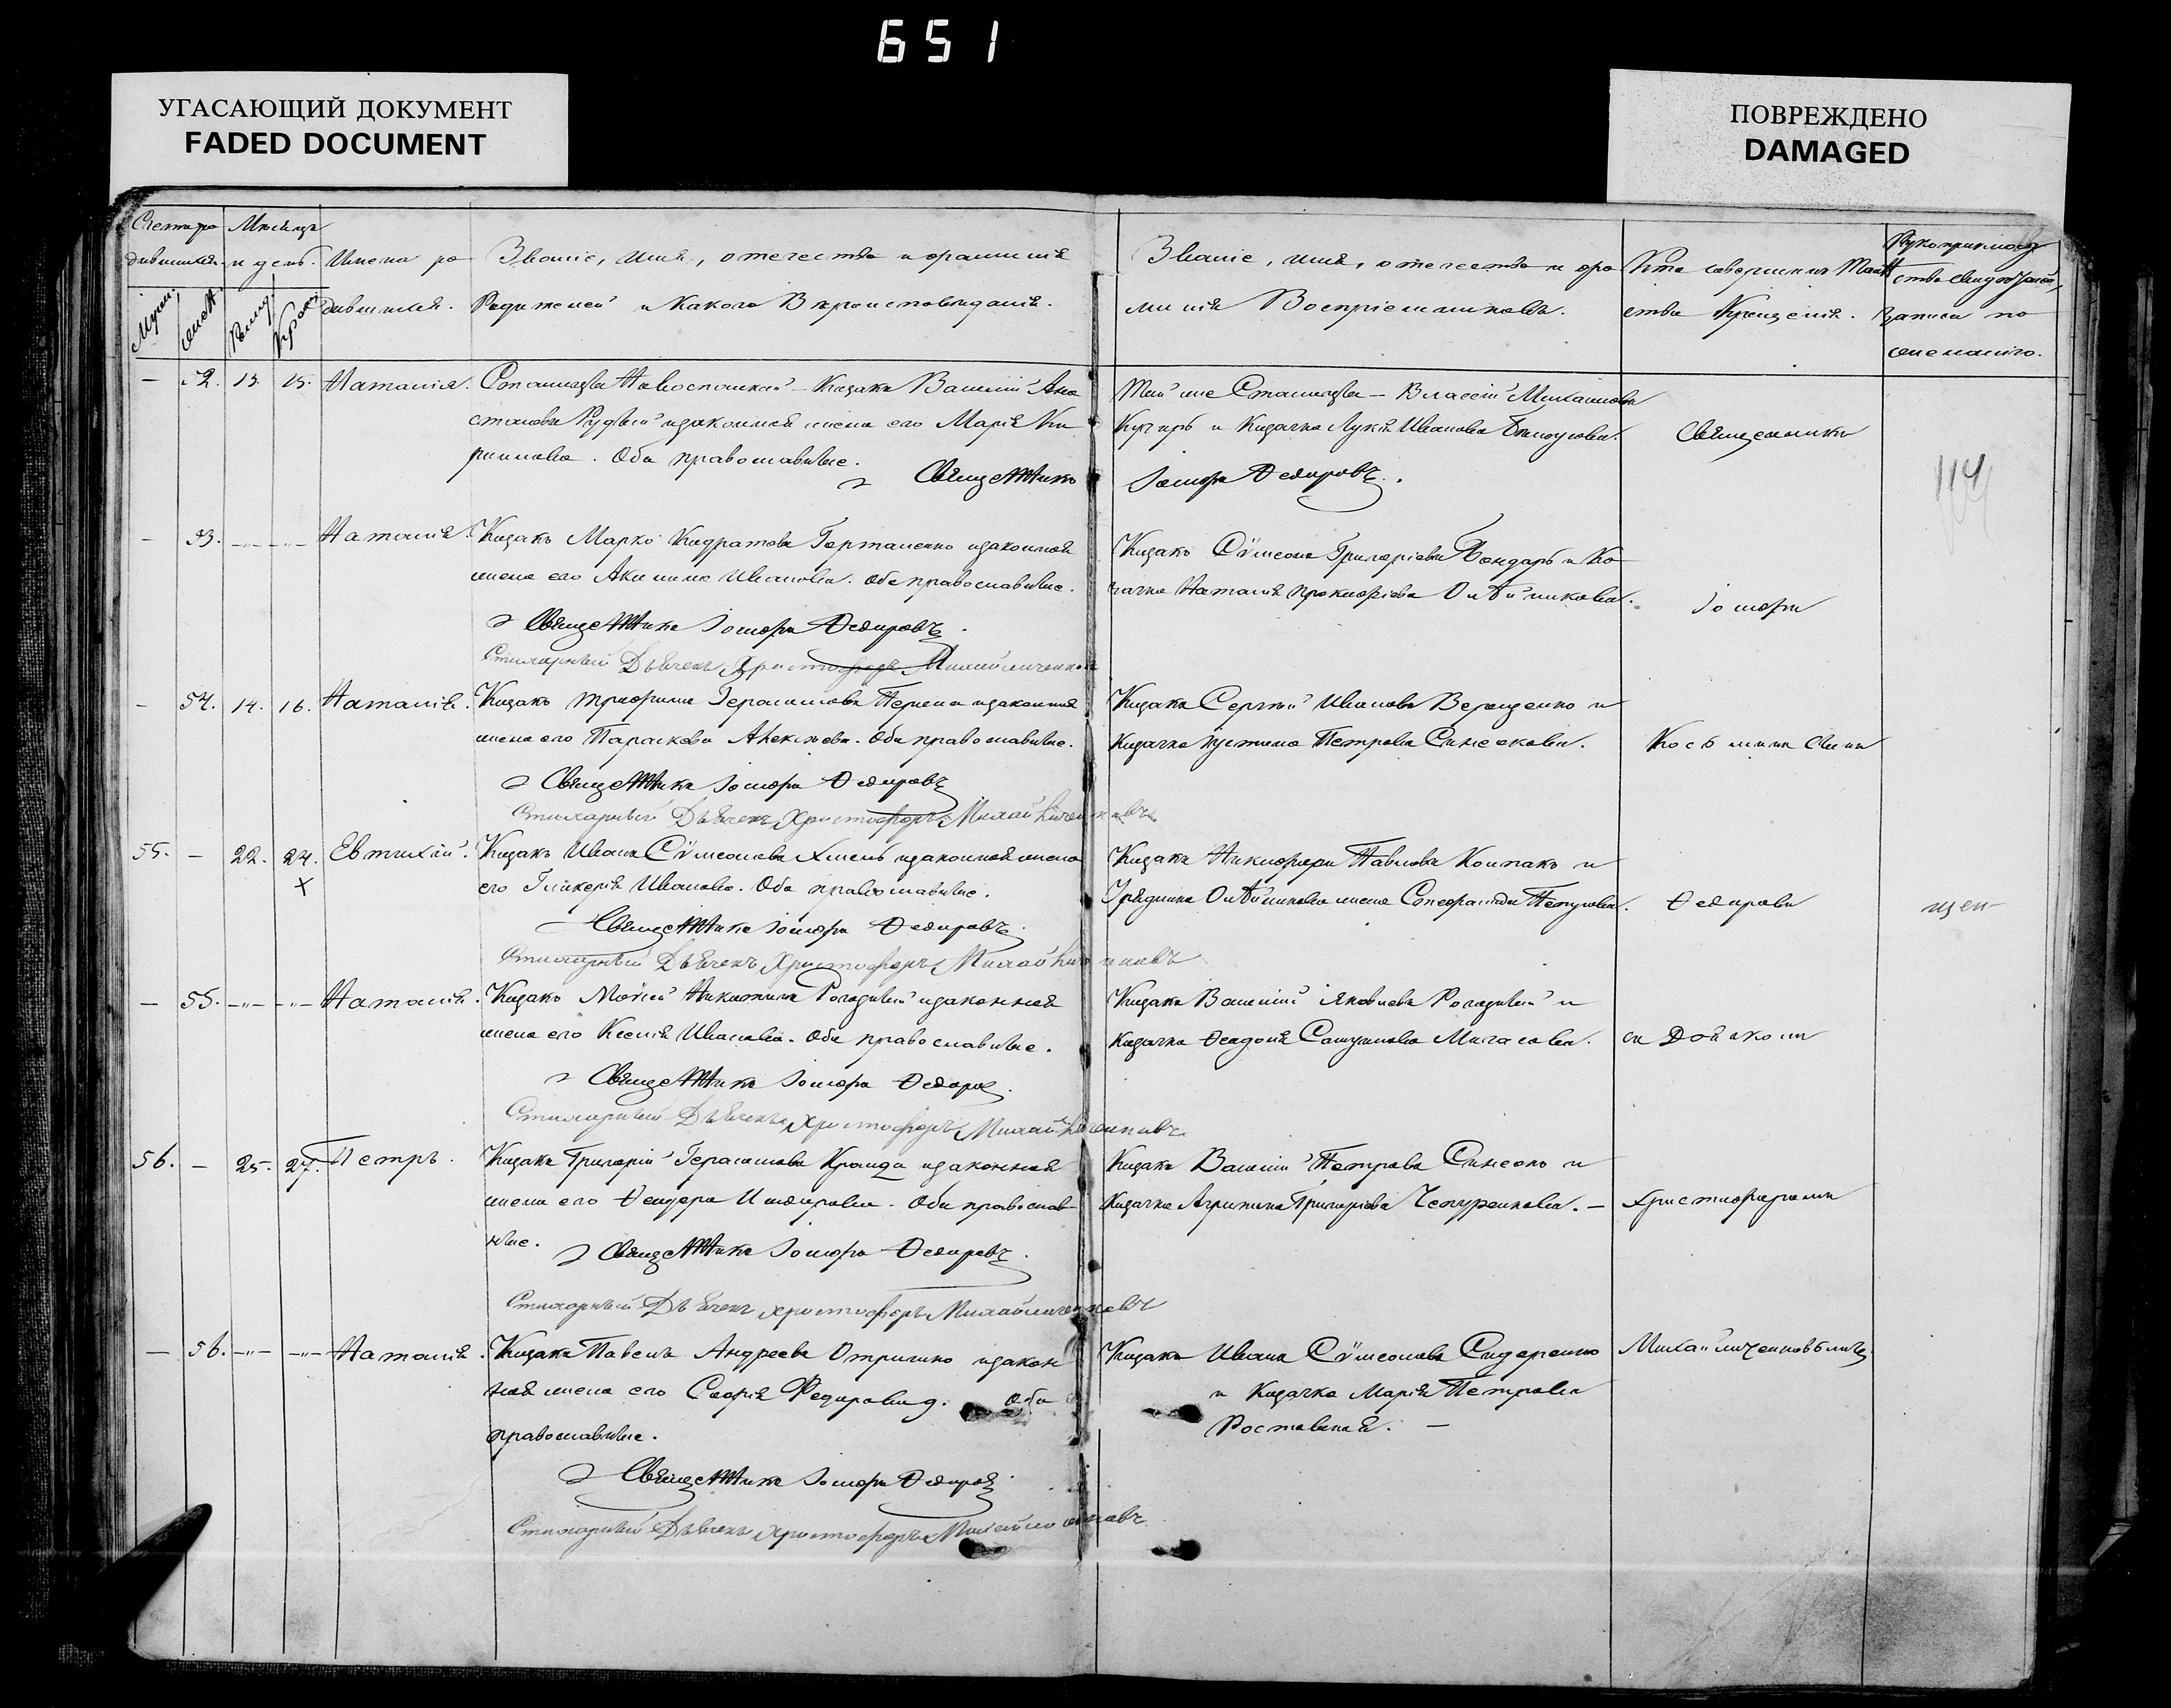 651
УГАСАЮЩИЙ ДОКУМЕНТ
FADED DOCUMENT
ПОВРЕЖДЕНО
DAMAGED
Счетъ ро
дившихся.
Муж.
женск.
Мѣсяцъ
и день.
Рожд.
Крещ.
Имена ро
дившихся.
Званіе, имя, отечество и фамилія
Родителей и какого Вѣроисповѣданія.
Званіе, имя, отечество и фа
милія Воспріемниковъ.
Кто совершилъ Таин
ство Крещенія.
Рукоприкладс
тво свидѣтелей
записи по
желанію.
— 52. 13. 15. Наталія.
Станицы Новоспаской — Козакъ Василій
Рудый и законная жена его Марія Ки
рилова. Оба православные.
Священникъ Іосифъ Федоровъ.
Той же Станицы — Власій Михайловъ
Кучиръ и Козачка Лукія Иванова
Священникъ
114
— 53. —„— —„— Наталія.
Козакъ Марко Кидратовъ Гортаненко и законная
жена его Акилина Иванова. Оба православные.
Священникъ Іосифъ Федоровъ.
Стихарный Дьячекъ Христофоръ Михайличенковъ
Козакъ Сѵмеонъ Григоріевъ Бондарь и Ко
зачка Наталія Прокофіева
Іосифъ
— 54. 14. 16. Наталія.
Козакъ Трифонъ Герасимовъ и законная
жена его Параскева Алексѣева. Оба православные.
Священникъ Іосифъ Федоровъ
Стихарный Дьячекъ Христофоръ Михайличенковъ
Козакъ Сергѣй Ивановъ Верещенко и
Козачка Іустина Петрова Синеокова.
55. — 22. 24. Евтихій.
Козакъ Иванъ Сѵмеоновъ Хмель и законная жена
его Гликерія Иванова. Оба православные.
Священникъ Іосифъ Федоровъ.
Стихарный Дьячекъ Христофоръ Михайличенковъ
Козакъ Никифоръ Павловъ Колпакъ и
Урядника жена
Федоровъ
— 55. —„— —„— Наталія.
Козакъ Моѵсей Никитинъ Рогозивый и законная
жена его Ксенія Иванова. Оба православные.
Священникъ Іосифъ Федоровъ.
Стихарный Дьячекъ Христофоръ Михайличенковъ
Козакъ Василій Яковлевъ Рогозивый и
Козачка Феодосія
съ Дьячкомъ
56. — 25. 27. Петръ.
Козакъ Григорій Герасимовъ и законная
жена его Феодора Исидорова. Оба православ-
ные.
Священникъ Іосифъ Федоровъ.
Стихарный Дьячекъ Христофоръ Михайличенковъ
Козакъ Василій Петровъ Синеокъ и
Козачка Агрипина Григоріева Чепуренкова. —
Христофоромъ
— 56. —„— —„— Наталія.
Козакъ Павелъ Андреевъ Отришко и закон
ная жена его Софія Федорова. Оба
православные.
Священникъ Іосифъ Федоровъ.
Стихарный Дьячекъ Христофоръ Михайличенковъ
Козакъ Иванъ Сѵмеоновъ Сидоренко
и Козачка Марія Петрова
Ростовская. —
Михайличенковымъ.